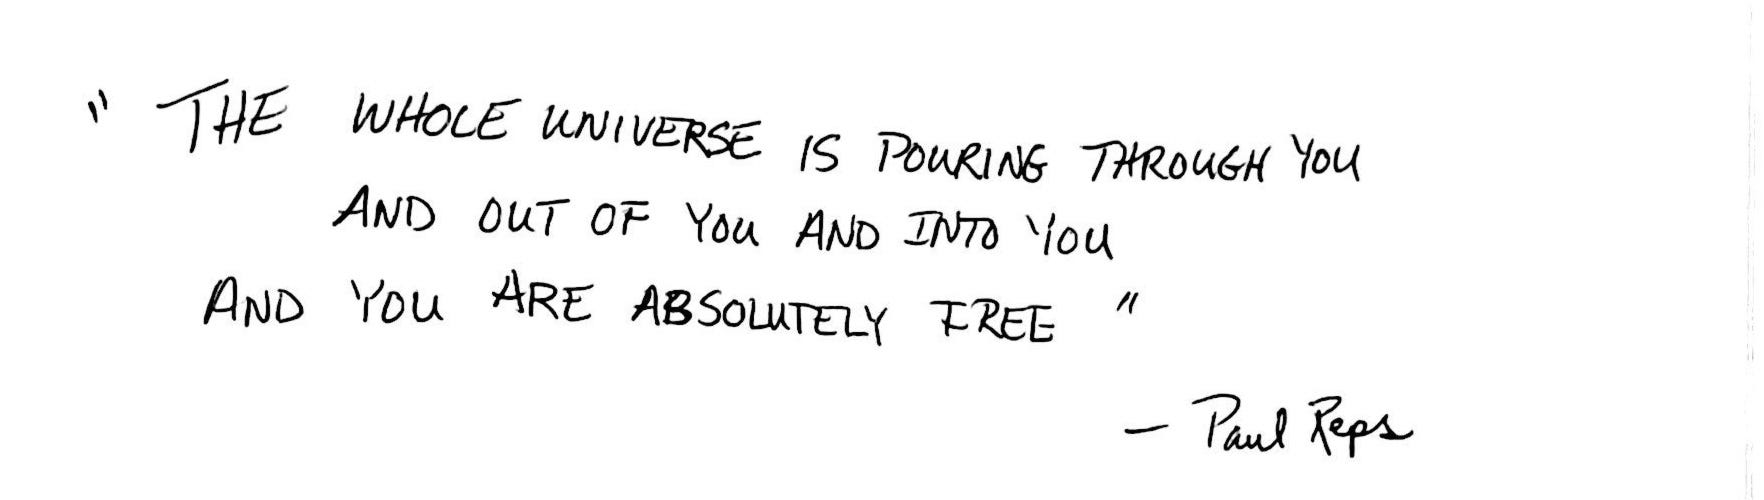 " THE WHOLE UNIVERSE IS POURING THROUGH YOU
AND OUT OF YOU AND INTO YOU
AND YOU ARE ABSOLUTELY FREE "
— Paul Reps